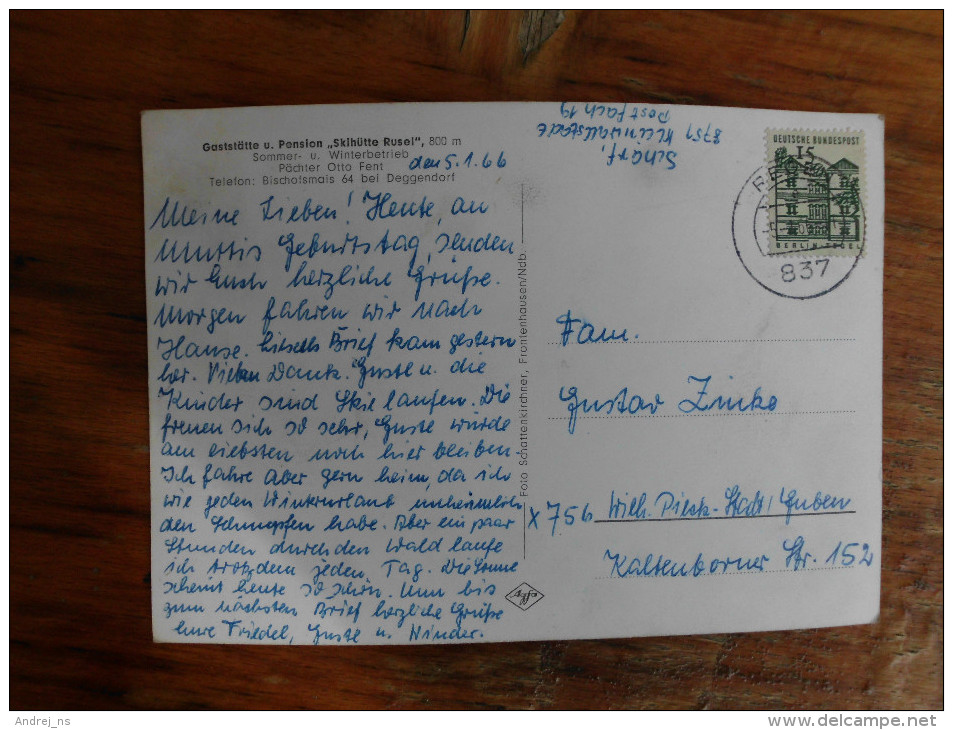 Gaststätte u. Pension „Skihütte Rusel", 800 m
Sommer- u. Winterbetrieb
Pächter Otto Fent
Telefon: Bischofsmais 64 bei Deggendorf
den 5.1.66
Meine Lieben! Heute, an
Muttis Geburtstag, senden
wir Euch herzliche Grüße.
Morgen fahren wir nach
Hause. Brief kam gestern
her. Vielen Dank. Guste u. die
Kinder sind Skie laufen. Die
freuen sich so sehr, Guste würde
am liebsten noch hier bleiben.
Ich fahre aber gern heim, da ich
wie jeden Winterurlaub unheimlich
den Schnupfen habe. Aber ein paar
Stunden durch den Wald laufe
ich trotzdem jeden Tag. Die Sonne
scheint heute so schön. Nun bis
zum nächsten Brief herzliche Grüße
Eure Friedel, Guste u. Kinder.
Foto Schattenkirchner, Frontenhausen/Ndb.
Agfa
Scharf,
8751 Kleinwallstadt
Postfach 19
DEUTSCHE BUNDESPOST
15
BERLIN-TEGEL
837
Fam.
Gustav Zinke
X 756 Wilh. Pieck-Stadt/Guben
Kaltenborner Str. 152
Andrej_ns
www.delcampe.net